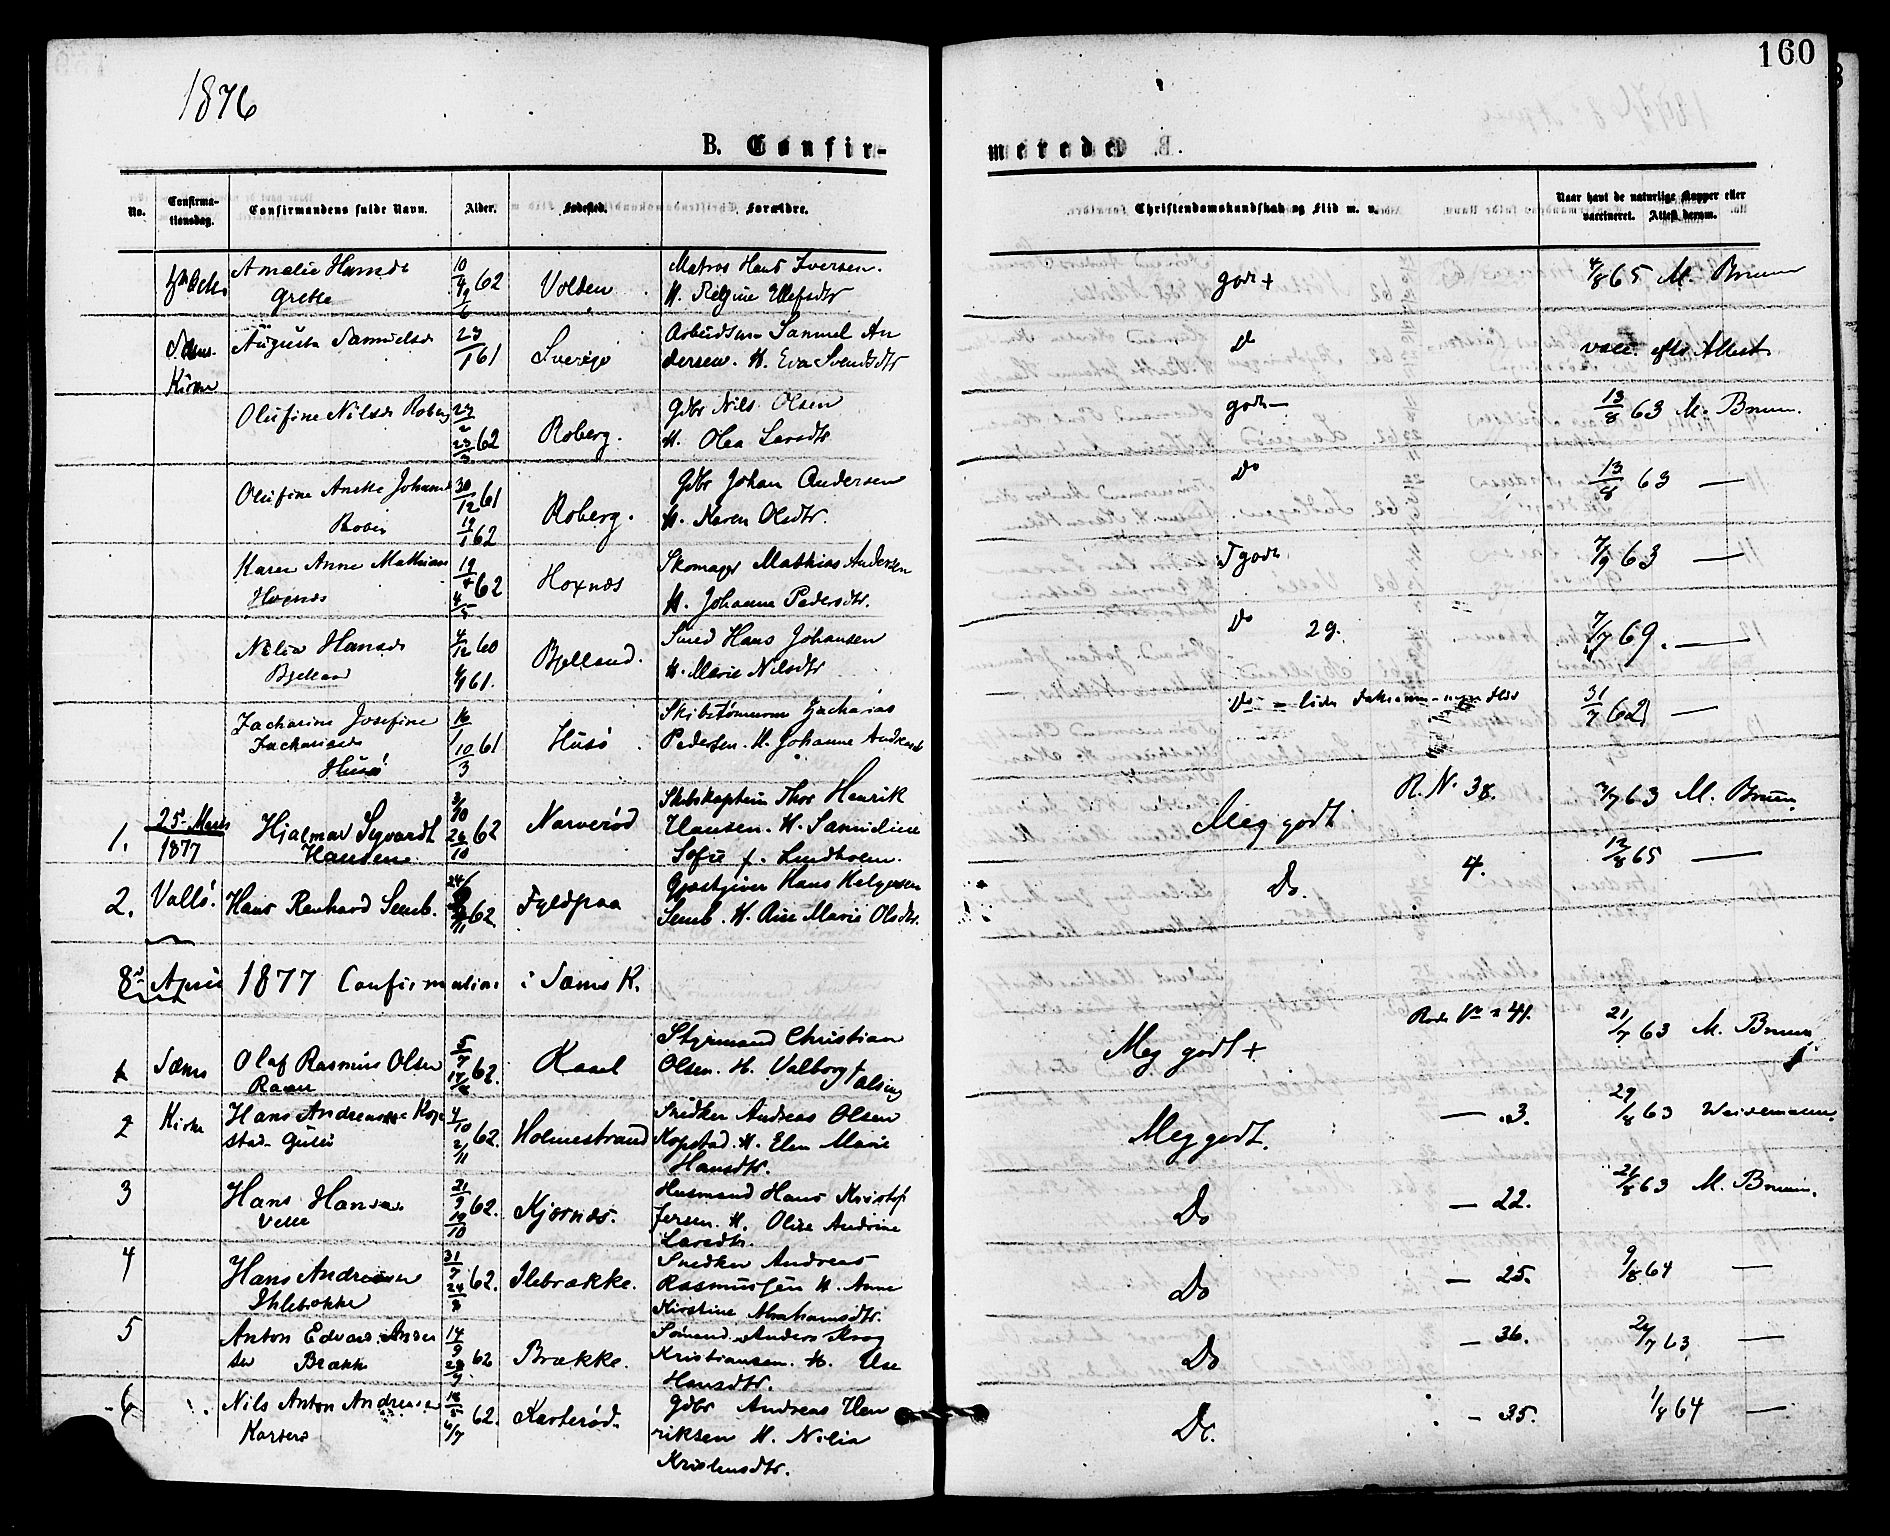 160
1876
B. Confir-
merede
No.
Confirma-
tionsdag.
Confirmandens fulde Navn.
Alder.
Fødested.
Forældre.
Christendomskundskab og Flid m. v.
Naar havt de naturlige Kopper eller
vaccineret. Attest derom.
Amalie Hansdr
Grette
10/4 62
Volden
Matros Hans Iversen.
H. Regine Ellefsdtr
godt +
4/8 65 M. Bruun
Sæms-
Kirke
Augusta Samuelsdr
23/1 61
Sverige
Arbeidsm Samuel An
dersen. H. Eva Svendsdtr
Do
vacc. efter Attest
Olufine Nilsdr Roberg
62
Roberg.
Gdbr Nils Olsen
H. Olea Larsdtr
godt -
13/8 63 M. Bruun.
Olufine Anette Johansd
30/12 61
19/1 62
Roberg.
Gdbr Johan Andersen
H. Karen Olsdtr.
Do
13/8 63 —
Karen Anne Mathias
19/4 62
4/5
Hoxnæs
Skomager Mathias Andersen
H. Johanne Pedersdtr.
Tgodt
7/9 63 —
Nilia Hansdr
Bjelland
4/12 60
61.
Bjelland.
Smed Hans Johansen
H. Marie Nilsdtr
Do 29.
7/7 69. —
Zacharine Josefine
Zachariasdr
Husø
16/1
10/3 61
Husø
Skibstømmerm Zacharias
Pedersen. H. Johanne Andreasd
Do
31/7 62 —
1.
25 Marts
1877
Hjalmar Sigvardt
Hansen
3/10
26/10 62
Narverød
Skibskaptein Thor Henrik
Hansen. H. Samueline
Sofie f. Lindholm.
Meg godt
R. N. 38.
2/7 63 M. Bruun.
2.
Vallø.
Hans Renhard Semb.
62
Fyldpaa
Gjæstgiver Hans Helgesen
Semb. H. Ane Marie Olsdtr.
Do.
4.
12/8 65 —
8de April 1877 Confirmation i Sæms K.
1
Sæms
Olaf Rasmus Olsen
Raael
5/7
62.
Raael
Styrmand Christian
Olsen. H. Valborg f
Alsing
Meg godt +
Rode No 41.
21/7 63 M. Bruun
2
Kirke
Hans Andreassen Kop
stad
4/10
2/11 62.
Holmestrand
Snedker Andreas Olsen
Kopstad. H. Elen Marie
Hansdtr.
Meg godt.
— 3.
29/8 63 Weidemann
3
Hans Hansen
Velle
21/9
19/10 62.
Kjærnæs.
Husmand Hans Kristof
fersen. H. Olise Andrine
Larsdtr.
Do
— 22.
21/8 63 M. Bruun.
4
Hans Andreassen
Ihlebrekke
31/7
24/8 62.
Ilebrække.
Snedker Andreas
Rasmussen H. Anne
Kirstine Abrahamsdtr.
Do
— 25.
9/8 64 —
5
Anton Edvard Ander
sen Brække
14/9
62
Brække.
Sømand Anders Skoog
Kristiansen. H. Else
Hansdtr.
Do
— 36.
24/7 63. —
6
Nils Anton Andreasen
18/5
6/7 62.
Karterød.
Gdbr Andreas Hen
riksen H. Nilia
Kristensdtr.
Do.
— 35.
1/8 64 —